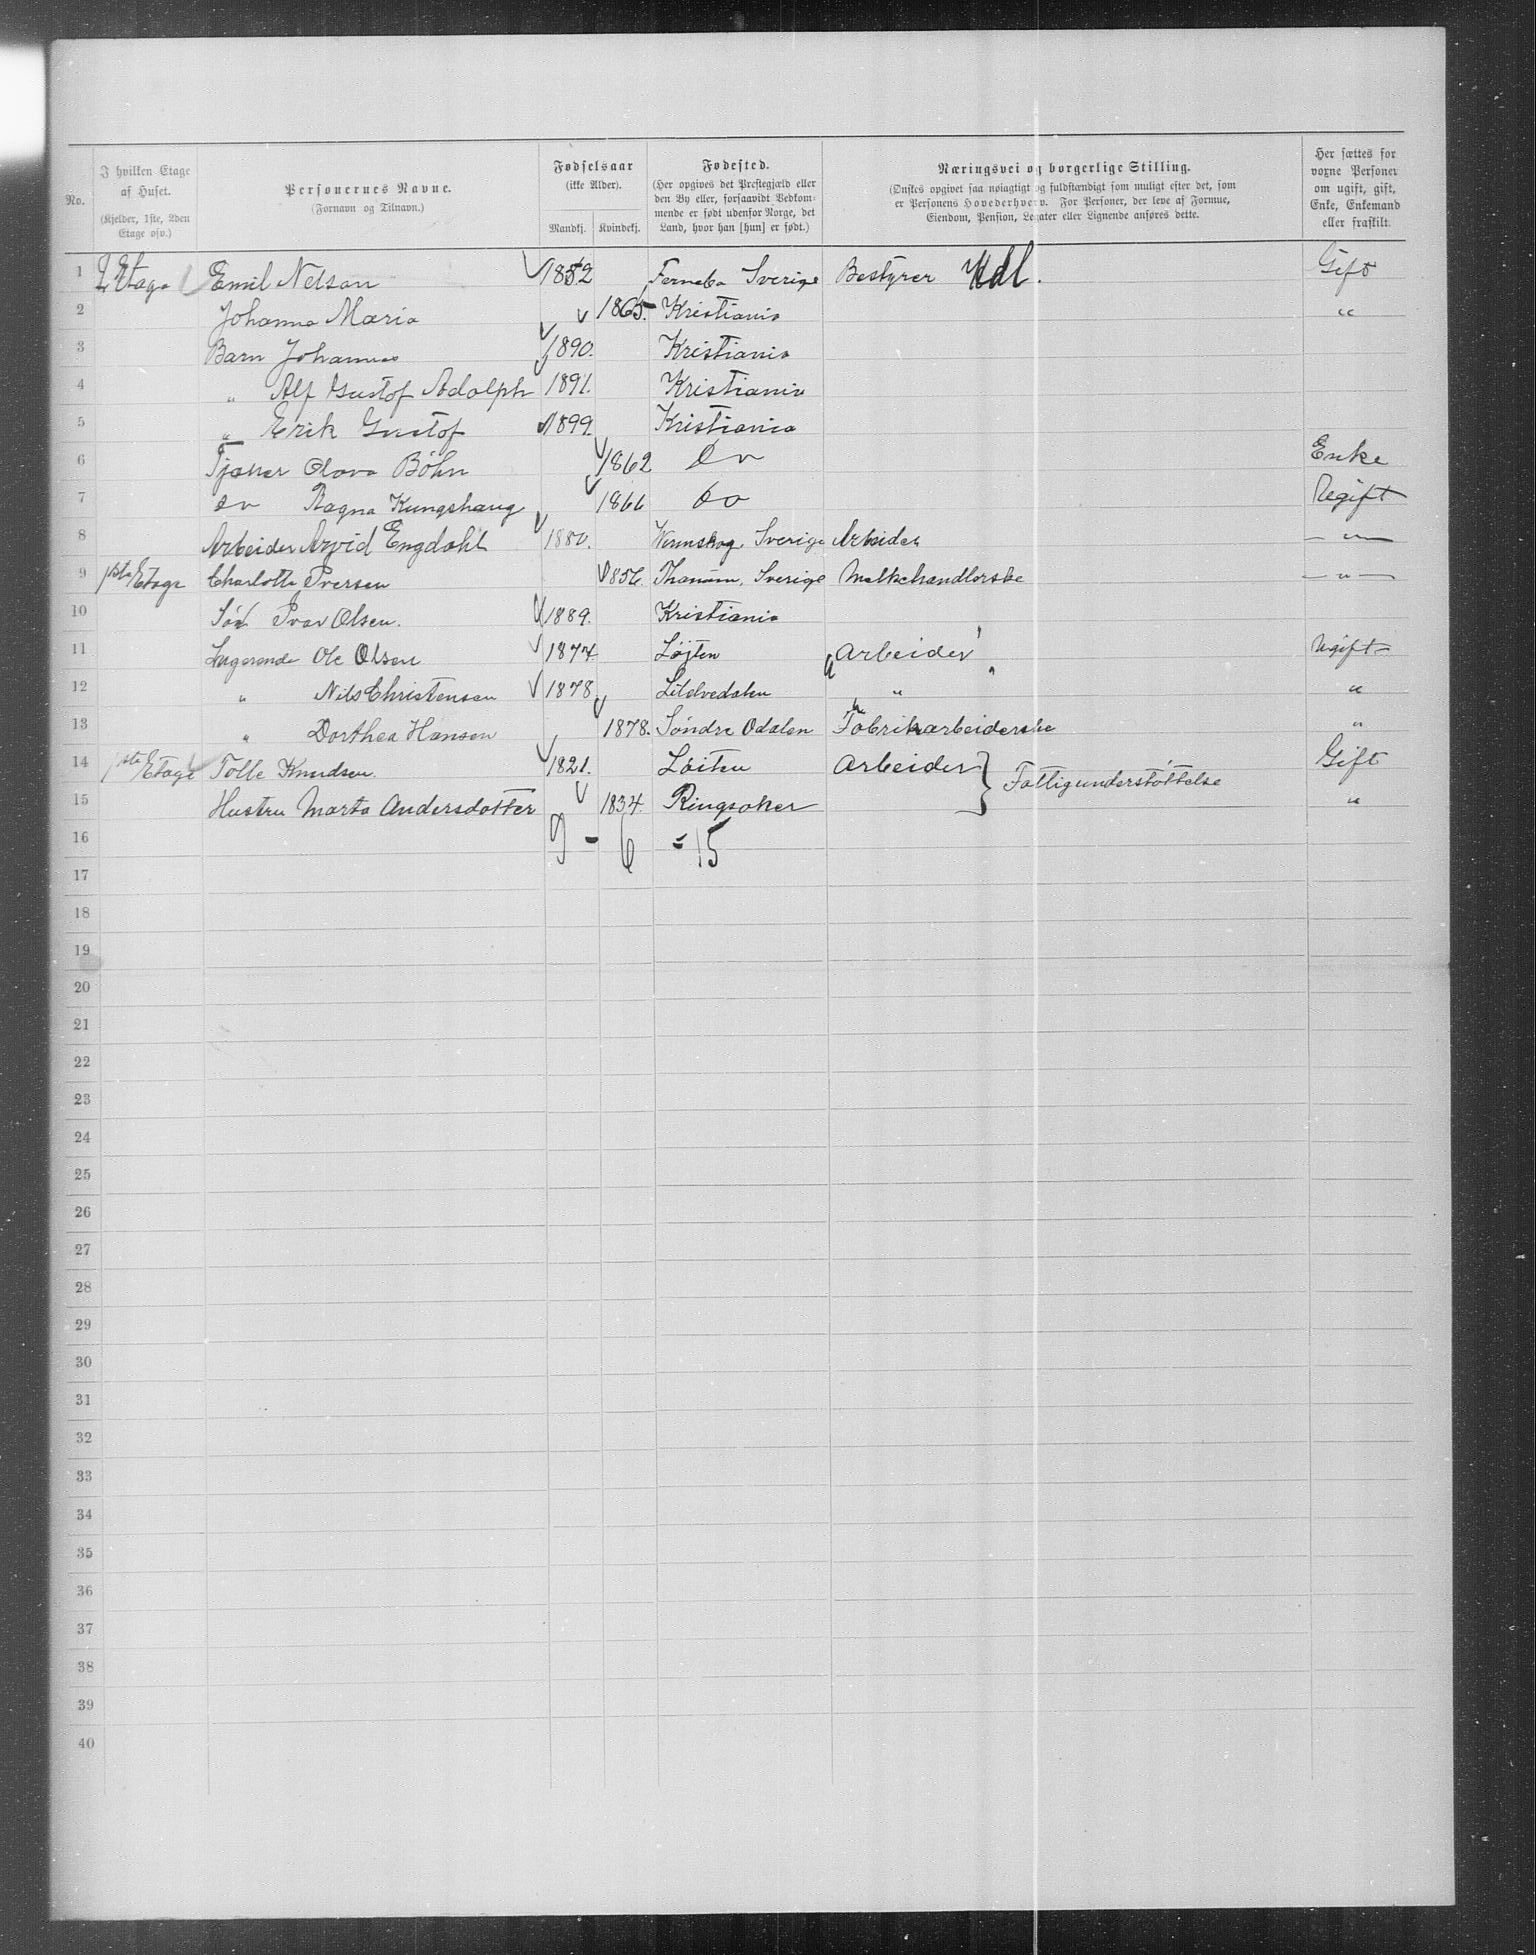 No. | I hvilken Etage af Huset. (Kjelder, 1ste, 2den Etage osv.) | Personernes Navne. (Fornavn og Tilnavn.) | Fødselsaar (ikke Alder). Mandkj. | Kvindekj. | Fødested. (Her opgives det Prestegjæld eller den By eller, forsaavidt Vedkommende er født udenfor Norge, det Land, hvor han [hun] er født.) | Næringsvei og borgerlige Stilling. (Ønskes opgivet saa nøiagtigt og fuldstændigt som muligt efter det, som er Personens Hovederhverv. For Personer, der leve af Formue, Eiendom, Pension, Legater eller Lignende anføres dette. | Her sættes for voxne Personer om ugift, gift, Enke, Enkemand eller fraskilt.
1 2 Etage Emil Nelson 1852 Ferneba Sverige Bestyrer Gift
2 Johanna Maria 1865. Kristiania "
3 Barn Johannes 1890. Kristiania
4 " Alf Gustof Adolph 1891. Kristiania
5 " Erik Gustof 1899. Kristiania
6 Tjener Olava Bøhn 1862 do Enke
7 do Ragna Kungshaug 1866 do Ugift
8 Arbeider Arvid Engdahl 1880. Wermskog Sverige Arbeider — " —
9 1ste Etage Charlotte Iversen 1856. Thanum, Sverige Melkehandlerske — " —
10 Søn Ivar Olsen. 1889. Kristiania
11 Logerende Ole Olsen 1874 Løjten Arbeider Ugift
12 " Nils Christensen 1878 Lilelvedalen " "
13 " Dorthea Hansen 1878. Søndre Odalen Fabrikarbeiderske "
14 1ste Etage Tolle Knudsen. 1821. Løiten Arbeider } Fattigunderstøttelse Gift
15 Hustru Marta Andersdotter 1834. Ringsaker "
16 9 - 6 = 15
17
18
19
20
21
22
23
24
25
26
27
28
29
30
31
32
33
34
35
36
37
38
39
40